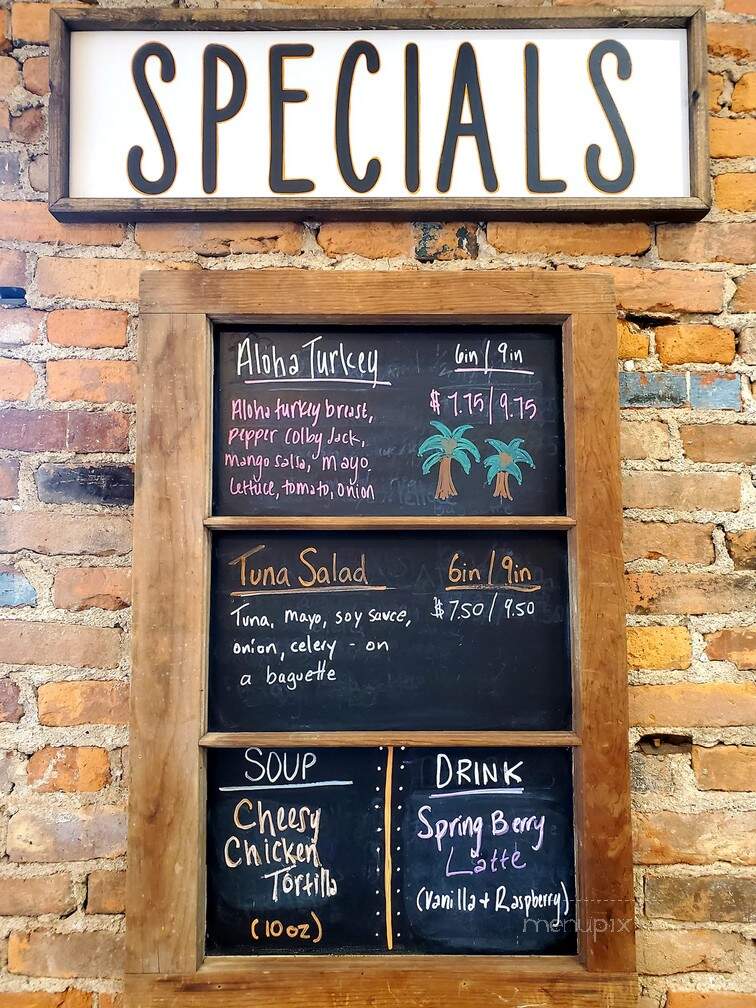 SPECIALS
Aloha Turkey 6in / 9in
Aloha turkey breast, $ 7.75 / 9.75
pepper Colby Jack,
mango salsa, mayo.
lettuce, tomato, onion
Tuna Salad 6in / 9in
Tuna, mayo, soy sauce, $ 7.50 / 9.50
onion, celery - on
a baguette
SOUP
Cheesy
Chicken
Tortilla
(10 oz)
DRINK
Spring Berry
Latte
(Vanilla + Raspberry)
menupix